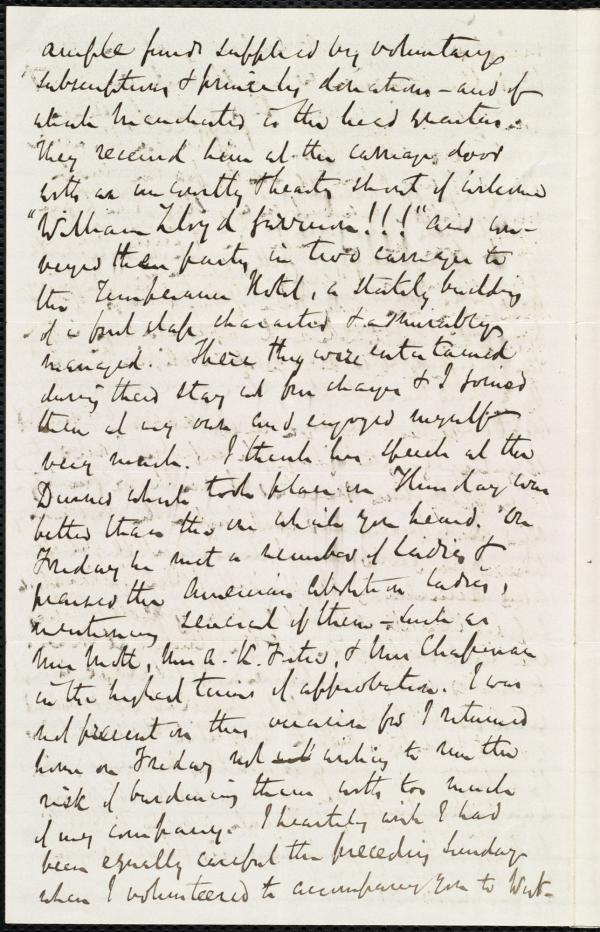 ample funds supplied by voluntary
subscriptions & princely donations – and of
which Manchester is the head quarters.
They received him at the carriage door
with an uncourtly & hearty shout of welcome
"William Lloyd Garrison!!!" and con-
veyed their party in two carriages to
the Temperance Hotel, a stately building
of a first class character & admirably
managed. There they were entertained
during their stay at free charges & I joined
them at my own and enjoyed myself
very much. I think his speech at the
Dinner which took place on Thursday was
better than the one which you heard. On
Friday he met a number of ladies &
praised the American Abolition ladies,
mentioning several of them – such as
Mrs Mott, Mrs A. K. Foster, & Mrs Chapman
in the highest terms of approbation. I was
not present on this occasion for I returned
home on Friday not wishing to run the
risk of burdening them with too much
of my company. I heartily wish I had
been equally careful the preceding Sunday
when I volunteered to accompany you to West-